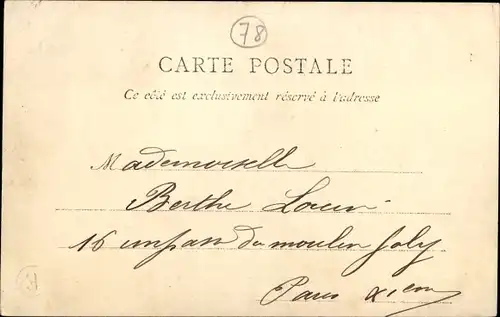 78
CARTE POSTALE
Ce côté est exclusivement réservé à l'adresse
Mademoiselle
Berthe
16 impasse du moulin Joly
Paris XIem